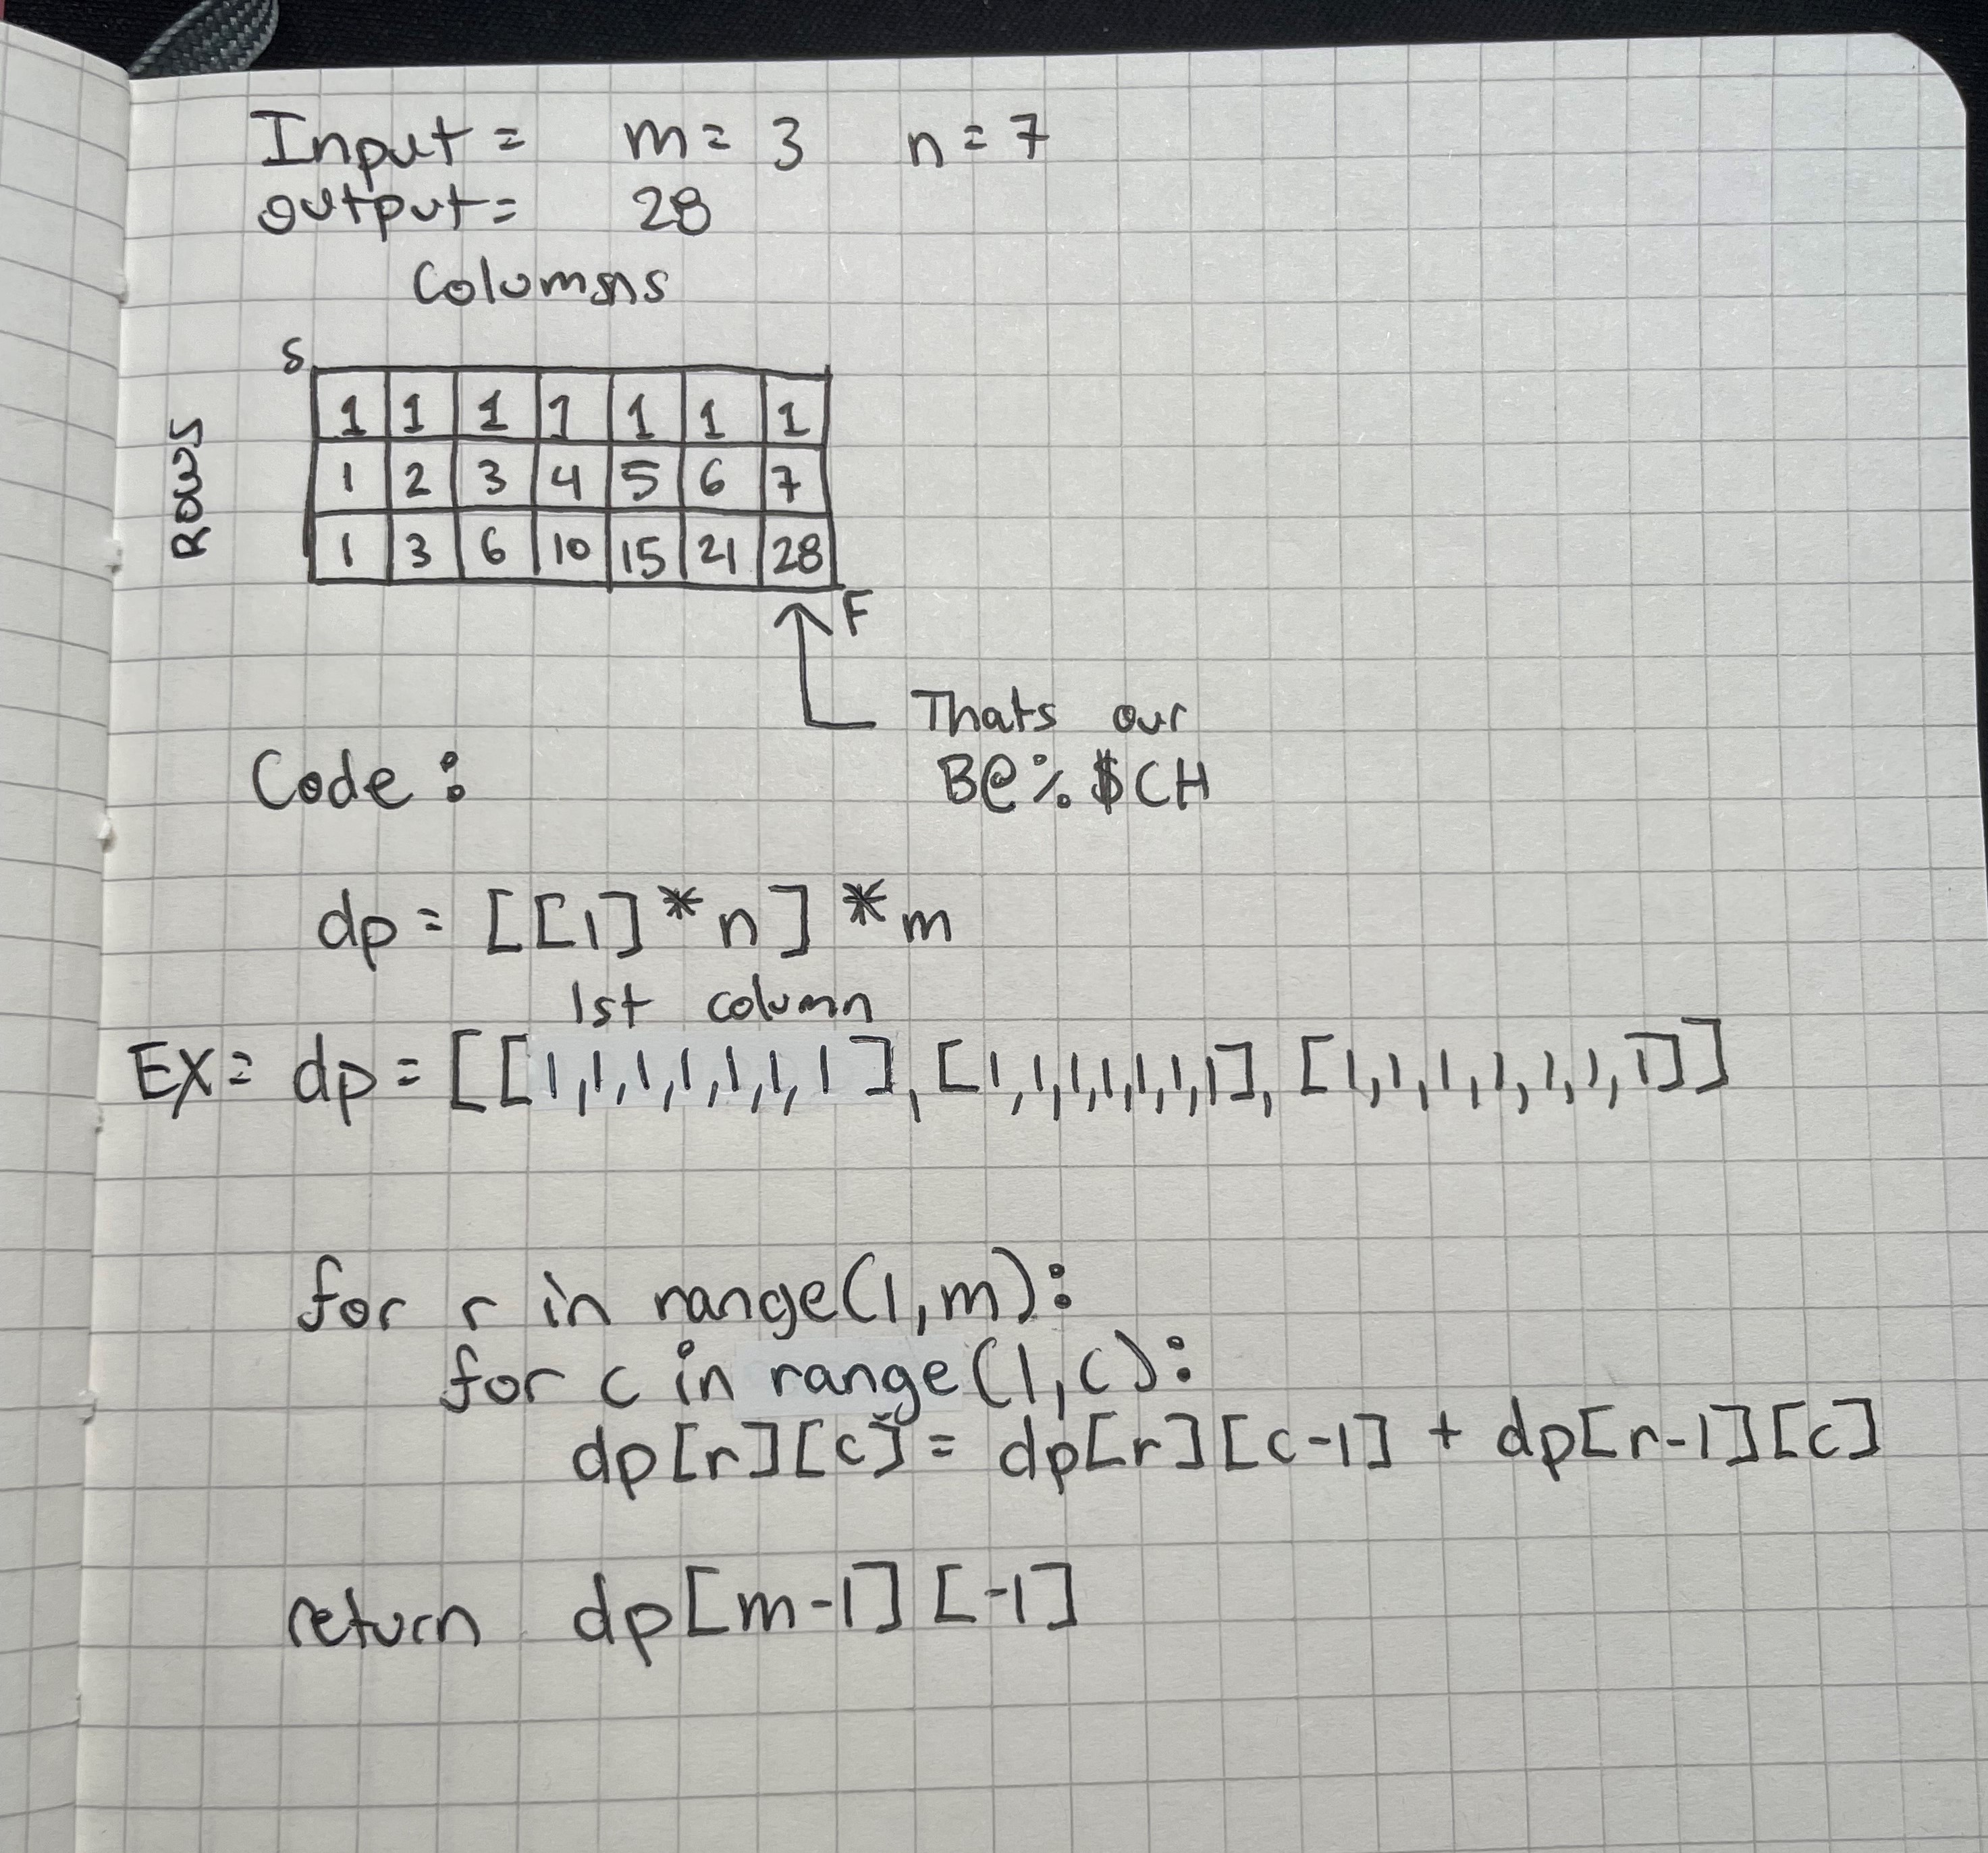 Input = m = 3 n = 7
output = 28
Colomsns
S
ROWS
1 1 1 1 1 1 1
1 2 3 4 5 6 7
1 3 6 10 15 21 28
F
Thats our
B@%$CH
Code :
dp = [[1] * n] * m
1st column
EX = dp = [[1,1,1,1,1,1,1], [1,1,1,1,1,1,1], [1,1,1,1,1,1,1]]
for r in range(1,m):
for c in range(1,c):
dp[r][c] = dp[r][c-1] + dp[r-1][c]
return dp[m-1][-1]